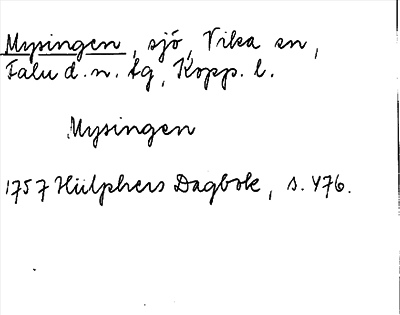 Mysingen, sjö, Vika sn,
Falu d. n. tg, Kopp. l.
Mysingen
1757 Hülphers Dagbok, s. 476.